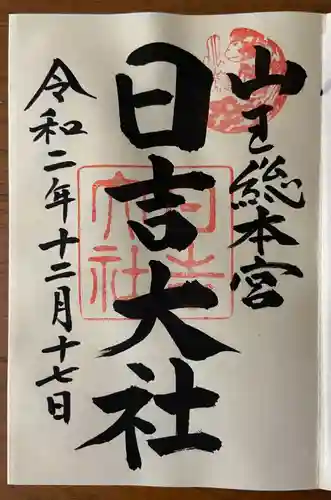 山王総本宮
日吉大社
令和二年十二月十七日
日吉大社